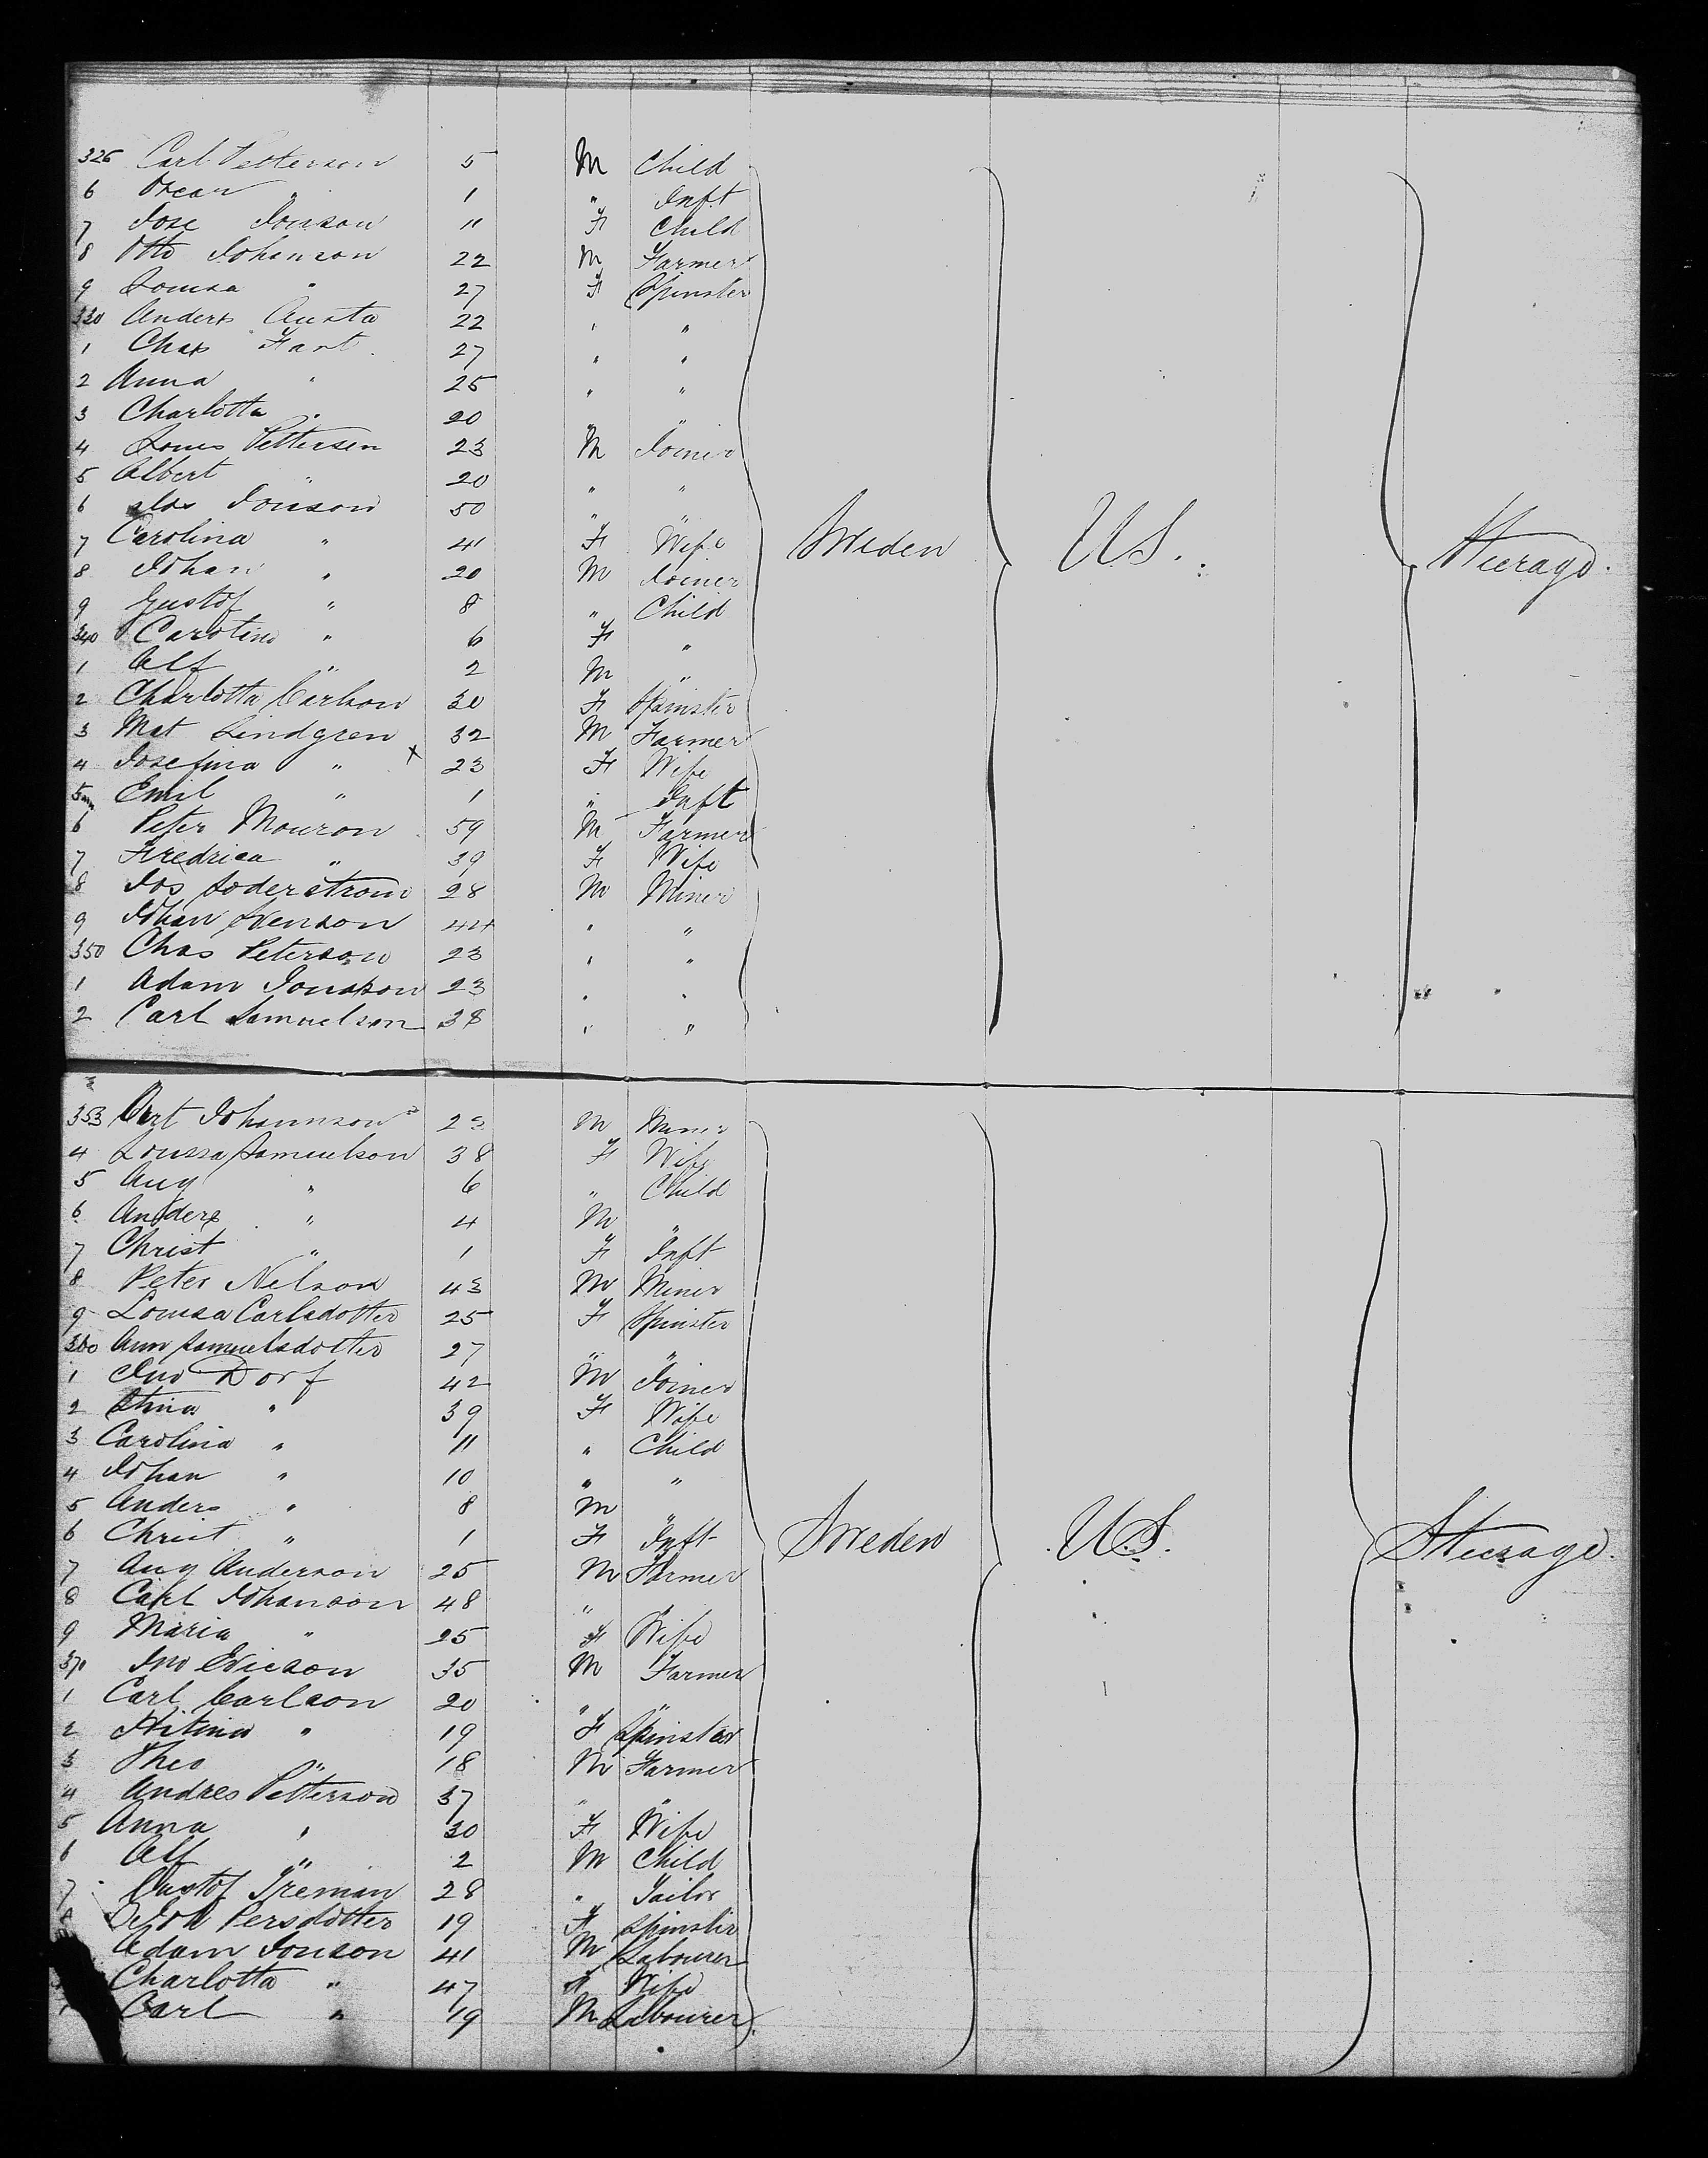 326 Carl Petterson 5 M Child
6 Oscar " 1 " Inft
7 Jose Jonson 11 F Child
8 Otto Johanson 22 M Farmer
9 Louisa " 27 F Spinster
330 Anders Austa 22 " "
1 Chas Fant 27 " "
2 Anna " 25 " "
3 Charlotta " 20 " "
4 Louis Pettersen 23 M Joiner
5 Albert " 20 " "
6 Jos Jonson 50 " "
7 Carolina " 41 F Wife Sweden U.S. Steerage.
8 Johan " 20 M Joiner
9 Gustof " 8 " Child
340 Carolina " 6 F "
1 Alf " 2 M "
2 Charlotta Carlson 30 F Spinster
3 Mat Lindgren 32 M Farmer
4 Josefina " X 23 F Wife
5 Emil " 1 " Inft
6 Peter Monron 59 M Farmer
7 Fredrica " 39 F Wife
8 Jos Soderstrom 28 M Miner
9 Johan Svenson 44 " "
350 Chas Peterson 23 " "
1 Adam Jonason 23 " "
2 Carl Samuelson 38 " "
353 Johannson 23 M Miner
4 Louisa Samuelson 38 F Wife
5 Aug " 6 " Child
6 Anders " 4 M "
7 Christ " 1 F Inft
8 Peter Nelson 43 M Miner
9 Louisa Carlsdotter 25 F Spinster
360 Ann Samuelsdotter 27 " "
1 Jno Dorf 42 M Joiner
2 Stina " 39 F Wife
3 Carolina " 11 " Child
4 Johan " 10 " "
5 Anders " 8 M "
6 Christ " 1 F Inft Sweden U.S. Steerage.
7 Aug Anderson 25 M Farmer
8 Carl Johanson 48 " "
9 Maria " 25 F Wife
370 Jno Ericson 35 M Farmer
1 Carl Carlson 20 " "
2 " 19 F Spinster
3 Theo " 18 M Farmer
4 Andres Petterson 37 " "
5 Anna " 30 F Wife
6 Alf " 2 M Child
7 Gustof Treman 28 " Tailor
8 Persdotter 19 F Spinster
Adam Jonson 41 M Labourer
Charlotta " 47 F Wife
1 Carl " 19 M Labourer